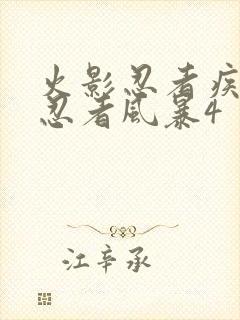 火影忍者疾
忍者风暴4
江辛承